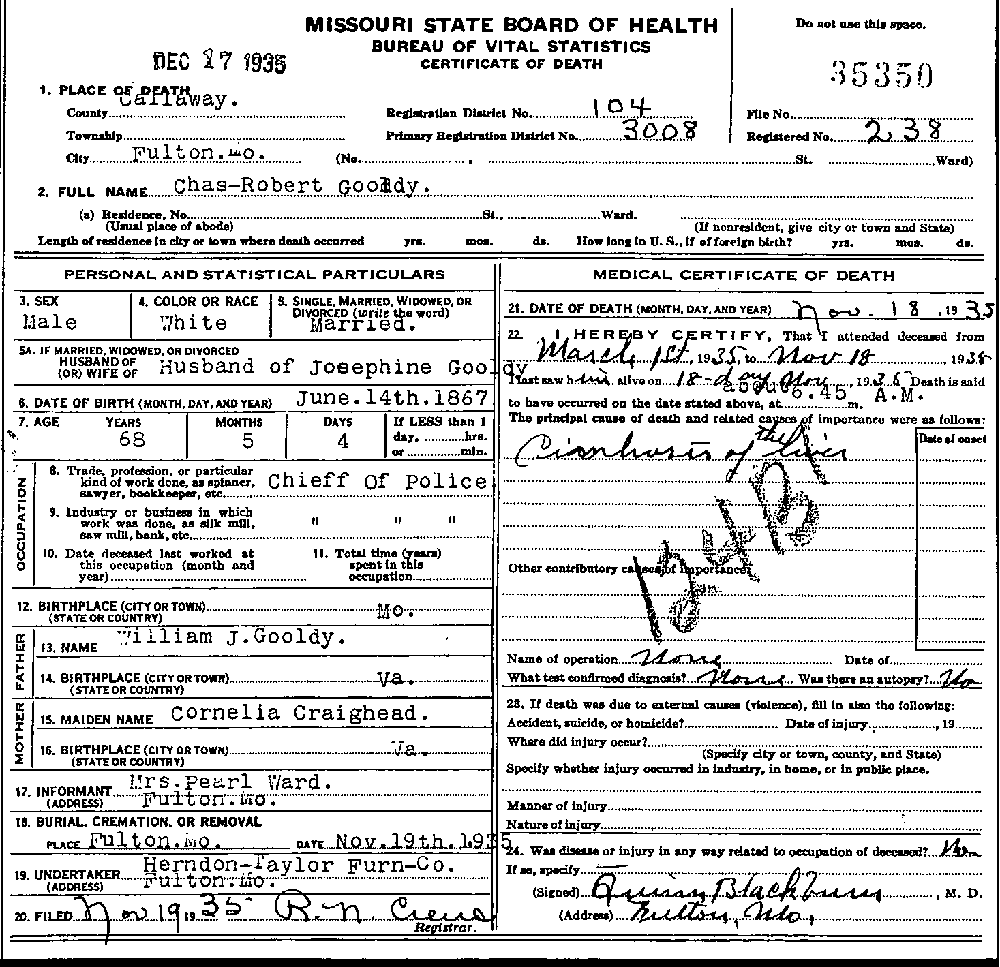 MISSOURI STATE BOARD OF HEALTH
BUREAU OF VITAL STATISTICS
CERTIFICATE OF DEATH
Do not use this space.
DEC 17 1935
35350
1. PLACE OF DEATH
County Callaway.
Registration District No. 104
File No.
Township
Primary Registration District No. 3008
Registered No. 238
City Fulton.Mo. (No. , St. Ward)
2. FULL NAME Chas-Robert Gooldy.
(a) Residence, No. St., Ward.
(Usual place of abode) (If nonresident, give city or town and State)
Length of residence in city or town where death occurred yrs. mos. ds. How long in U. S., if of foreign birth? yrs. mos. ds.
PERSONAL AND STATISTICAL PARTICULARS
3. SEX
Male
4. COLOR OR RACE
White
5. SINGLE, MARRIED, WIDOWED, OR
DIVORCED (write the word)
Married.
5A. IF MARRIED, WIDOWED, OR DIVORCED
HUSBAND OF
(OR) WIFE OF Husband of Josephine Gooldy
6. DATE OF BIRTH (MONTH, DAY, AND YEAR) June.14th.1867
7. AGE YEARS MONTHS DAYS If LESS than 1
68 5 4 day, hrs.
or min.
OCCUPATION
8. Trade, profession, or particular
kind of work done, as spinner,
sawyer, bookkeeper, etc. Chieff Of Police
9. Industry or business in which
work was done, as silk mill,
saw mill, bank, etc. " " "
10. Date deceased last worked at
this occupation (month and
year)
11. Total time (years)
spent in this
occupation
12. BIRTHPLACE (CITY OR TOWN) Mo.
(STATE OR COUNTRY)
FATHER
13. NAME William J.Gooldy.
14. BIRTHPLACE (CITY OR TOWN) Va.
(STATE OR COUNTRY)
MOTHER
15. MAIDEN NAME Cornelia Craighead.
16. BIRTHPLACE (CITY OR TOWN) Va.
(STATE OR COUNTRY)
17. INFORMANT Mrs.Pearl Ward.
(ADDRESS) Fulton.Mo.
18. BURIAL, CREMATION, OR REMOVAL
PLACE Fulton.Mo. DATE Nov.19th.1935
19. UNDERTAKER Herndon-Taylor Furn-Co.
(ADDRESS) Fulton.Mo.
20. FILED Nov 19 1935 R.N. Crews
Registrar.
MEDICAL CERTIFICATE OF DEATH
21. DATE OF DEATH (MONTH, DAY, AND YEAR) Nov. 18, 1935
22. I HEREBY CERTIFY, That I attended deceased from
March 1st, 1935, to Nov 18, 1935
I last saw him alive on 18-day Nov, 1935 Death is said
to have occurred on the date stated above, at about 6.45 m. A.M.
The principal cause of death and related causes of importance were as follows:
Date of onset
Cirrhosis of the liver
124B
Other contributory causes of importance:
Name of operation None Date of
What test confirmed diagnosis? None Was there an autopsy? No
23. If death was due to external causes (violence), fill in also the following:
Accident, suicide, or homicide? Date of injury , 19
Where did injury occur?
(Specify city or town, county, and State)
Specify whether injury occurred in industry, in home, or in public place.
Manner of injury
Nature of injury
24. Was disease or injury in any way related to occupation of deceased?
If so, specify
(Signed) Quinn Blackburn, M. D.
(Address) Fulton, Mo.